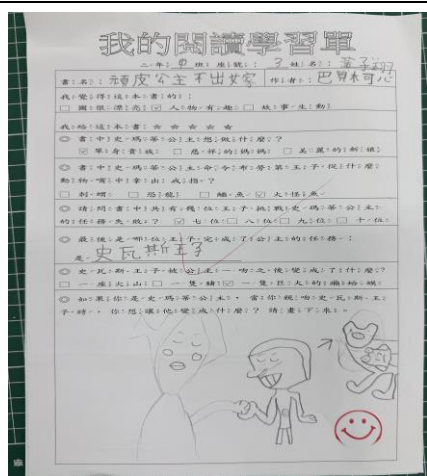 我的閱讀學習單
二年 班 座號: 3 姓名:
書名: 頑皮公主不出嫁 作者: 巴貝柯爾
我覺得這本書的:
□圖很漂亮 ☑人物有趣 □故事生動
我給這本書: ★ ★ ★ ★ ★
◎書中史瑪蒂公主想做什麼?
☑單身貴族 □慈祥的媽媽 □美麗的新娘
◎書中史瑪蒂公主命令布勞第王子從什麼
動物嘴中拿出戒指?
□刺蝟 □恐龍 □鱷魚 ☑大怪魚
◎請問書中共有幾位王子挑戰史瑪蒂公主
的任務失敗? ☑七位 □八位 □九位 □十位
◎最後是哪位王子完成了公主的任務:
是 史瓦斯王子
◎史瓦斯王子被公主一吻之後變成了什麼?
□一座火山 □一隻豬 ☑一隻巨大的癩蛤蟆
◎如果你是史瑪蒂公主,當你親吻史瓦斯王
子時,你想讓他變成什麼? 請畫下來。